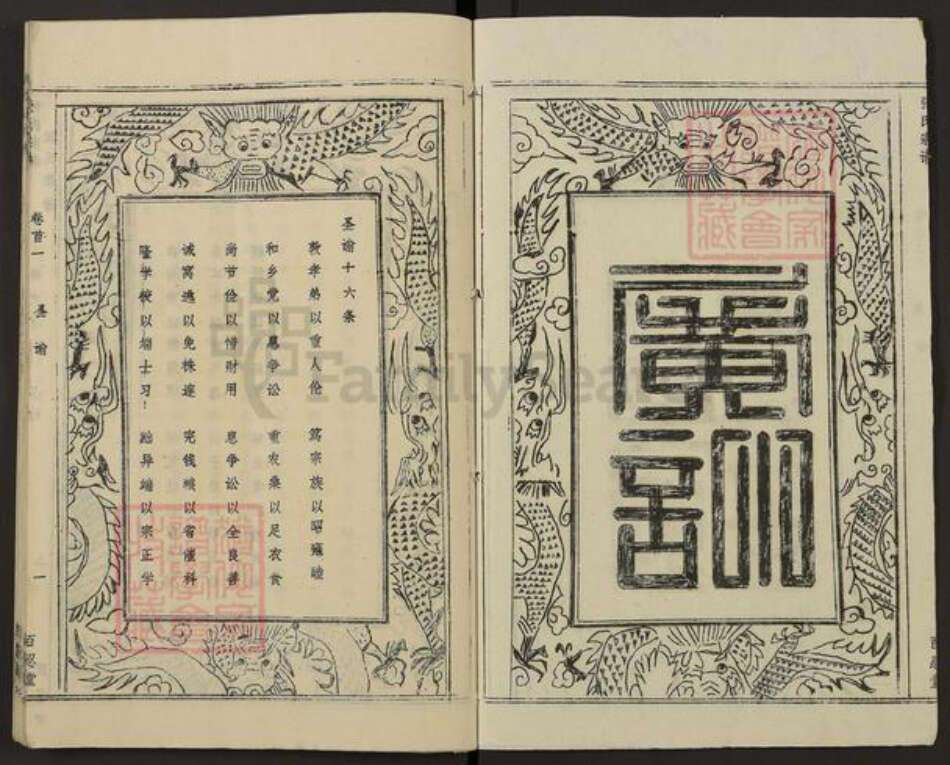 廣訓
圣谕十六条
敦孝弟以重人伦 笃宗族以昭雍睦
和乡党以息争讼 重农桑以足衣食
尚节俭以惜财用 息争讼以全良善
诫窝逃以免株连 完钱粮以省催科
隆学校以端士习! 黜异端以宗正学
卷首一 圣谕 一 百忍堂
FamilySearch